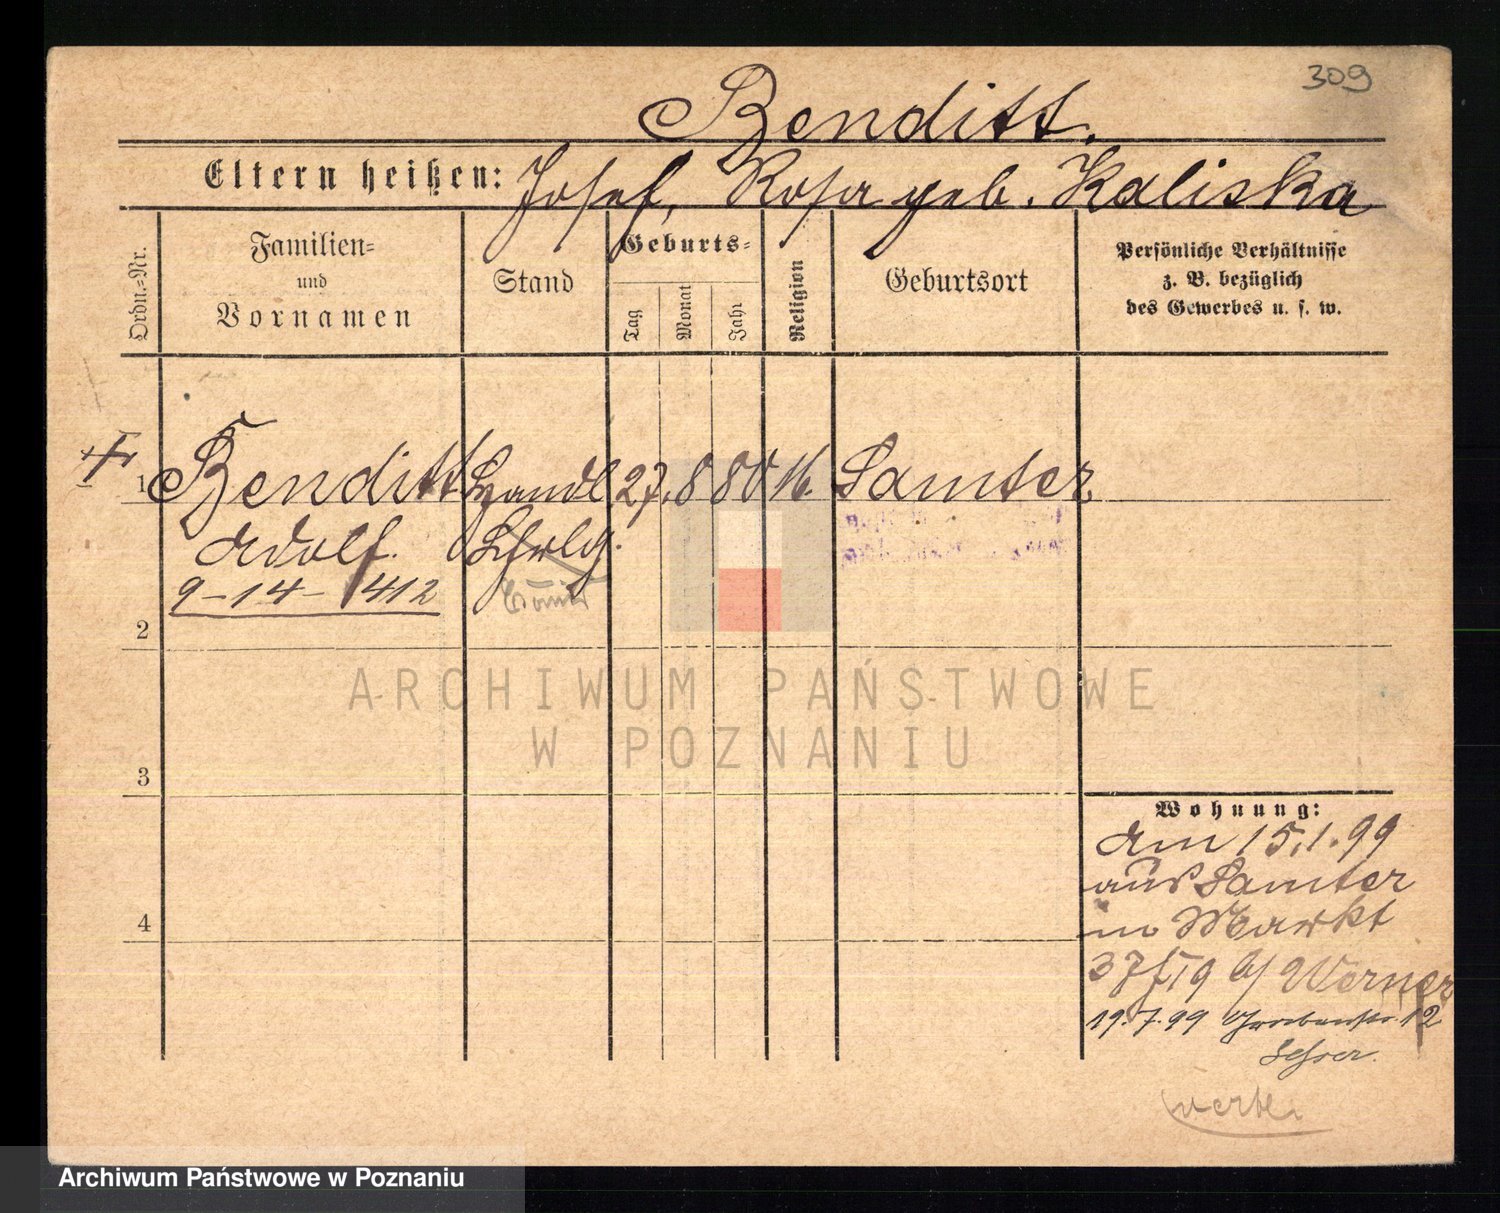 309
Benditt.
Eltern heißen: Josef, Rosa geb. Kaliska
Ordn.=Nr.
Familien=
und
Vornamen
Stand
Geburts=
Tag
Monat
Jahr
Religion
Geburtsort
Persönliche Verhältnisse
z. B. bezüglich
des Gewerbes u. s. w.
1 Benditt Handl. 27. 8 80 M. Samter
Adolf. Lehrlg.
9-14- 1412
2
3
4
ARCHIWUM PAŃSTWOWE
W POZNANIU
Wohnung:
Am 15.1.99
aus Samter
in Markt
37 b/ Werner
19.7.99 12
Archiwum Państwowe w Poznaniu